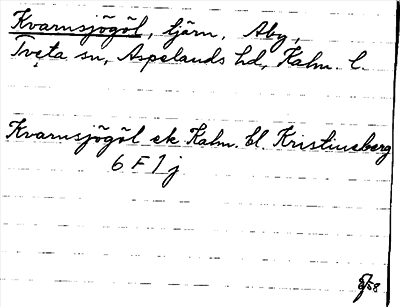 Kvarnsjögöl, tjärn, Aby,
Tveta sn, Aspelands hd, Kalm. l.
Kvarnsjögöl ek Kalm. bl. Kristineberg
6 F 1 j